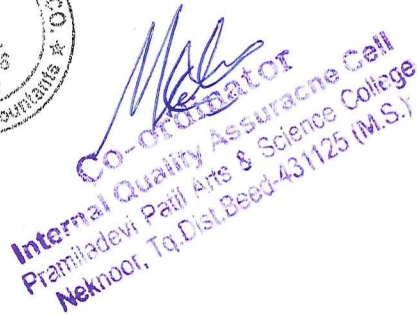 CO.
ountants ★
Co-ordinator
Internal Quality Assuracne Cell
Pramiladevi Patil Arts & Science College
Neknoor, Tq.Dist.Beed-431125 (M.S.)